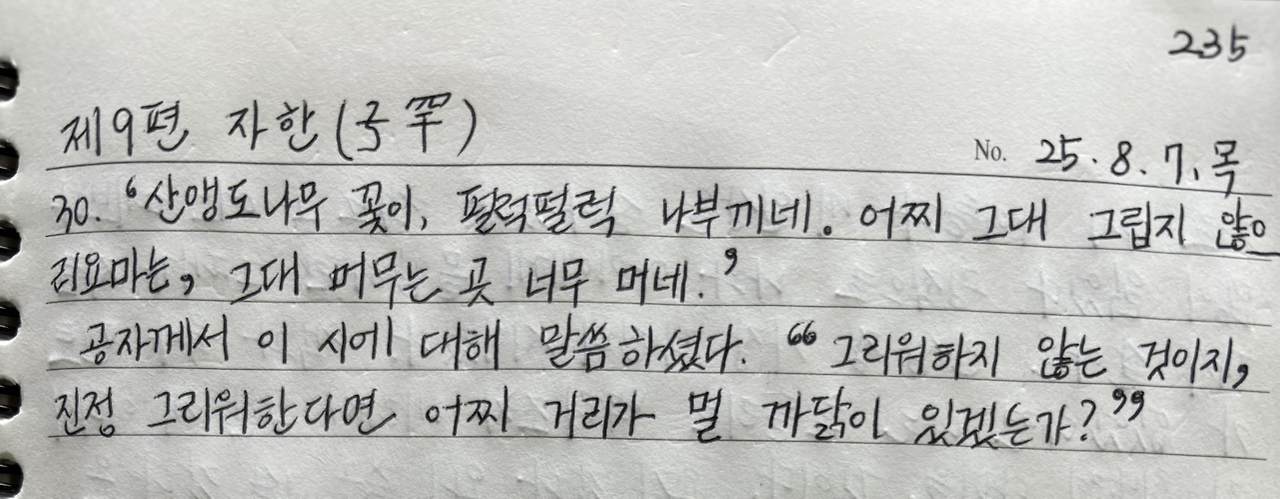 235
제9편 자한(子罕)
No. 25. 8. 7. 목
30. ‘산앵도나무 꽃이, 펄럭펄럭 나부끼네. 어찌 그대 그립지 않으
리요마는, 그대 머무는 곳 너무 머네.’
공자께서 이 시에 대해 말씀하셨다. “그리워하지 않는 것이지,
진정 그리워한다면 어찌 거리가 멀 까닭이 있겠는가?”